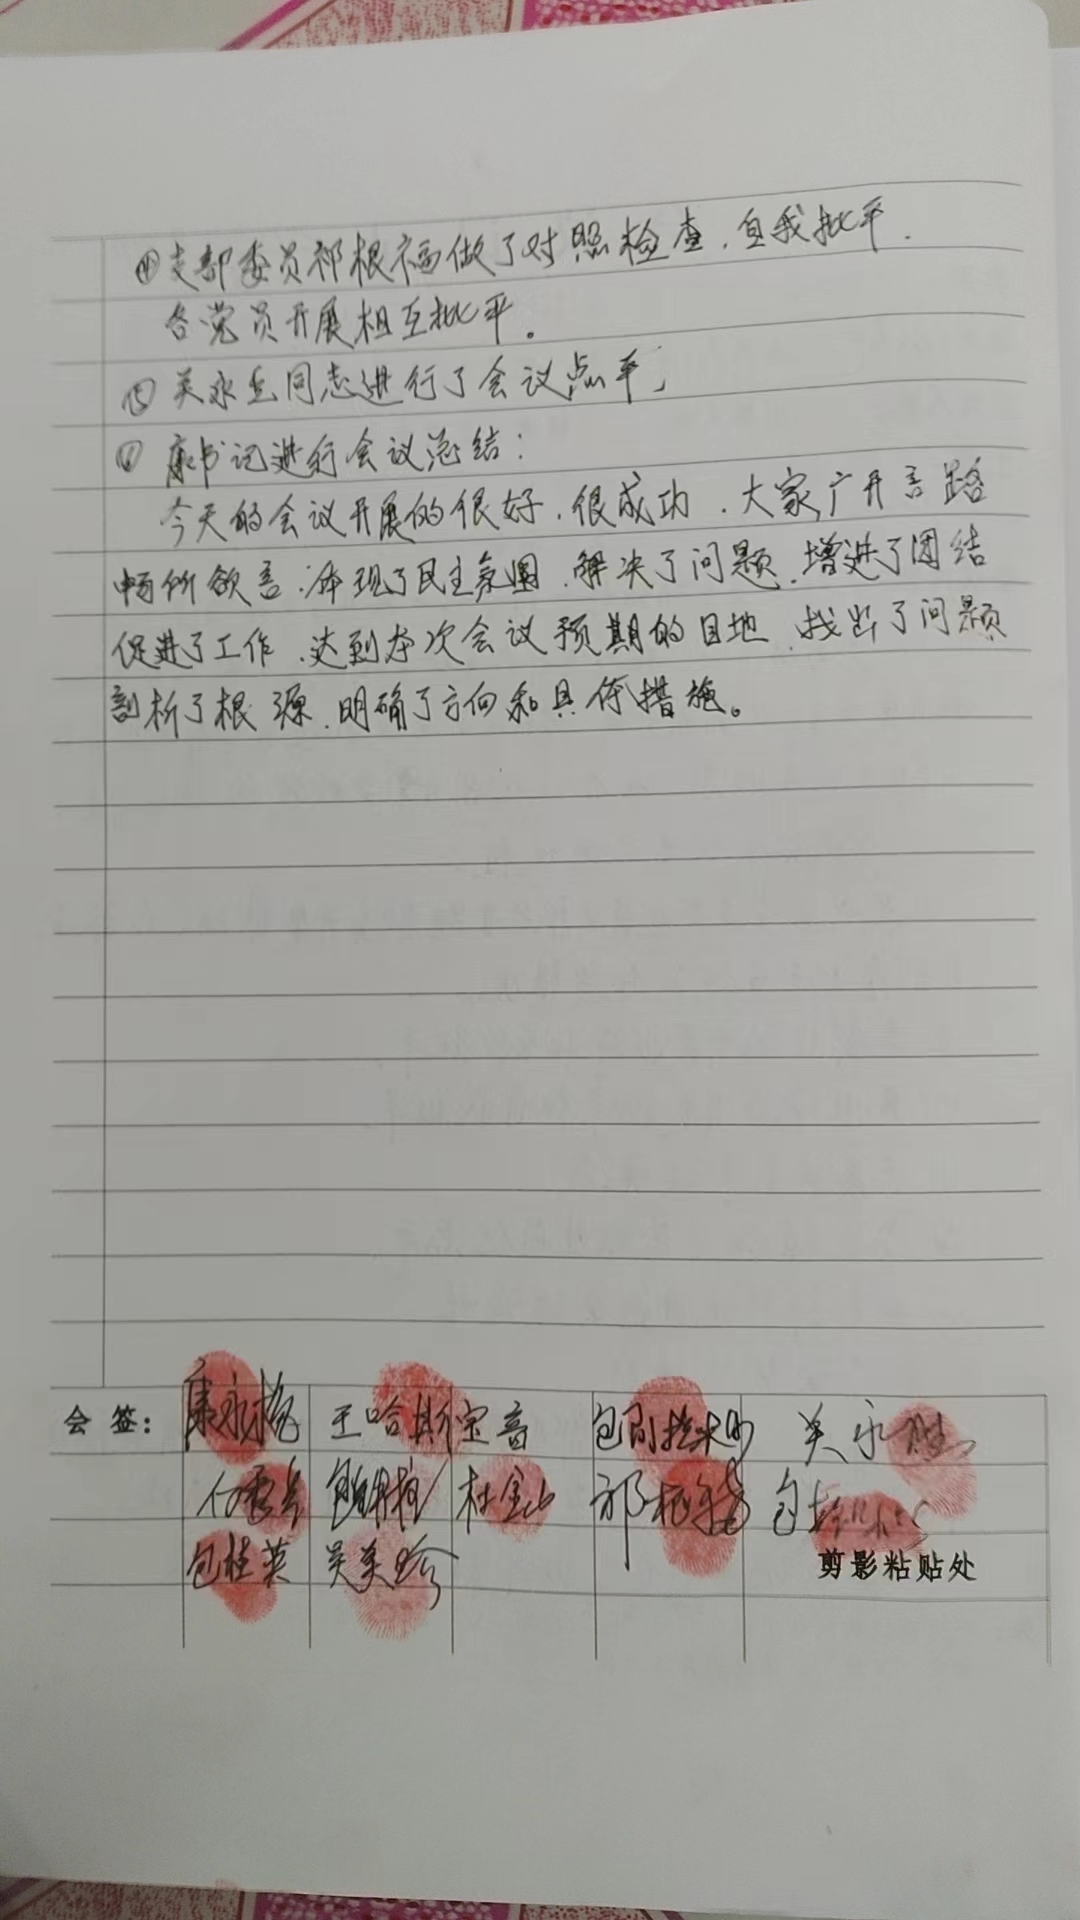 ㈣支部委员祁根福做了对照检查，自我批平，
各党员开展相互批平。
㈤ 关永 同志进行了会议点平，
㈥ 康书记进行会议总结：
今天的会议开展的很好，很成功，大家广开言路
畅所欲言，体现了民主氛围，解决了问题，增进了团结
促进了工作，达到本次会议预期的目地，找出了问题
剖析了根源，明确了方向和具体措施。
会 签： 康永梅 王哈斯宝音 关永胜
杜金山 祁根福
包桂英 吴美珍
剪影粘贴处